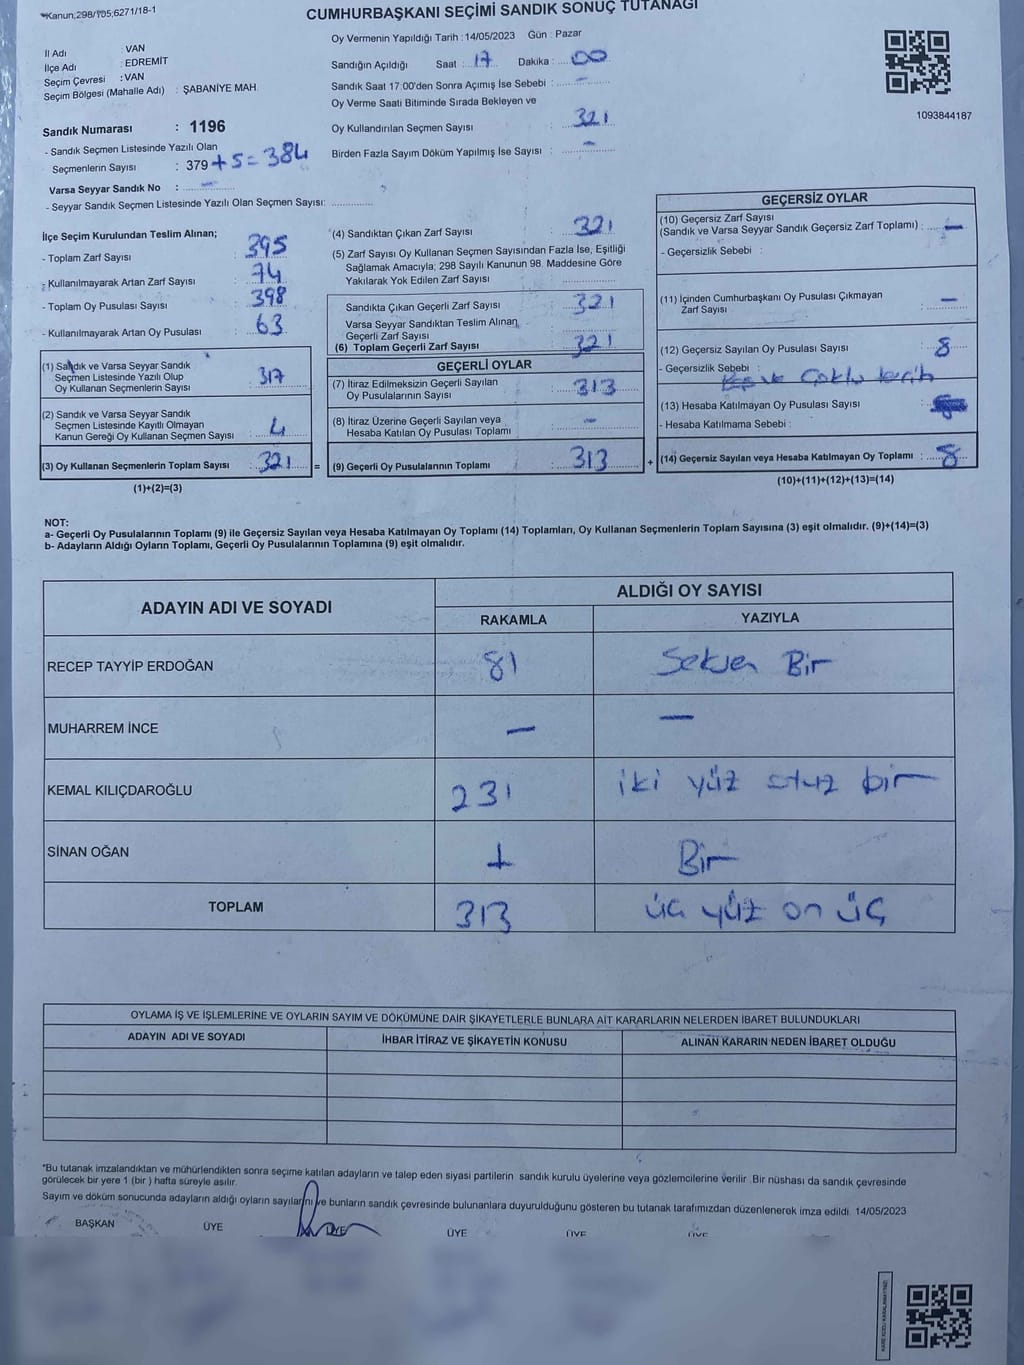 *Kanun;298/105;6271/18-1
CUMHURBAŞKANI SEÇİMİ SANDIK SONUÇ TUTANAĞI
İl Adı : VAN
İlçe Adı : EDREMİT
Seçim Çevresi : VAN
Seçim Bölgesi (Mahalle Adı) : ŞABANİYE MAH.
Oy Vermenin Yapıldığı Tarih :14/05/2023 Gün : Pazar
Sandığın Açıldığı Saat : 17 Dakika : 00
Sandık Saat 17:00'den Sonra Açımış İse Sebebi : –
Oy Verme Saati Bitiminde Sırada Bekleyen ve
Oy Kullandırılan Seçmen Sayısı : 321
Birden Fazla Sayım Döküm Yapılmış İse Sayısı : –
1093844187
Sandık Numarası : 1196
- Sandık Seçmen Listesinde Yazılı Olan
Seçmenlerin Sayısı : 379 + 5 = 384
Varsa Seyyar Sandık No : –
- Seyyar Sandık Seçmen Listesinde Yazılı Olan Seçmen Sayısı:
İlçe Seçim Kurulundan Teslim Alınan;
- Toplam Zarf Sayısı : 395
- Kullanılmayarak Artan Zarf Sayısı : 74
- Toplam Oy Pusulası Sayısı : 398
- Kullanılmayarak Artan Oy Pusulası : 63
(1) Sandık ve Varsa Seyyar Sandık
Seçmen Listesinde Yazılı Olup
Oy Kullanan Seçmenlerin Sayısı : 317
(2) Sandık ve Varsa Seyyar Sandık
Seçmen Listesinde Kayıtlı Olmayan
Kanun Gereği Oy Kullanan Seçmen Sayısı : 4
(3) Oy Kullanan Seçmenlerin Toplam Sayısı : 321 =
(1)+(2)=(3)
(4) Sandıktan Çıkan Zarf Sayısı : 321
(5) Zarf Sayısı Oy Kullanan Seçmen Sayısından Fazla İse, Eşitliği
Sağlamak Amacıyla; 298 Sayılı Kanunun 98. Maddesine Göre
Yakılarak Yok Edilen Zarf Sayısı :
Sandıkta Çıkan Geçerli Zarf Sayısı : 321
Varsa Seyyar Sandıktan Teslim Alınan
Geçerli Zarf Sayısı :
(6) Toplam Geçerli Zarf Sayısı : 321
GEÇERLİ OYLAR
(7) İtiraz Edilmeksizin Geçerli Sayılan
Oy Pusulalarının Sayısı : 313
(8) İtiraz Üzerine Geçerli Sayılan veya
Hesaba Katılan Oy Pusulası Toplamı : –
(9) Geçerli Oy Pusulalarının Toplamı : 313 +
GEÇERSİZ OYLAR
(10) Geçersiz Zarf Sayısı
(Sandık ve Varsa Seyyar Sandık Geçersiz Zarf Toplamı) : –
- Geçersizlik Sebebi :
(11) İçinden Cumhurbaşkanı Oy Pusulası Çıkmayan
Zarf Sayısı : –
(12) Geçersiz Sayılan Oy Pusulası Sayısı : 8
- Geçersizlik Sebebi :
ve Çoklu tercih
(13) Hesaba Katılmayan Oy Pusulası Sayısı :
- Hesaba Katılmama Sebebi :
(14) Geçersiz Sayılan veya Hesaba Katılmayan Oy Toplamı : 8
(10)+(11)+(12)+(13)=(14)
NOT:
a- Geçerli Oy Pusulalarının Toplamı (9) ile Geçersiz Sayılan veya Hesaba Katılmayan Oy Toplamı (14) Toplamları, Oy Kullanan Seçmenlerin Toplam Sayısına (3) eşit olmalıdır. (9)+(14)=(3)
b- Adayların Aldığı Oyların Toplamı, Geçerli Oy Pusulalarının Toplamına (9) eşit olmalıdır.
ADAYIN ADI VE SOYADI ALDIĞI OY SAYISI
RAKAMLA YAZIYLA
RECEP TAYYİP ERDOĞAN 81 Seksen Bir
MUHARREM İNCE – –
KEMAL KILIÇDAROĞLU 231 iki yüz otuz bir
SİNAN OĞAN 1 Bir
TOPLAM 313 üç yüz on üç
OYLAMA İŞ VE İŞLEMLERİNE VE OYLARIN SAYIM VE DÖKÜMÜNE DAİR ŞİKAYETLERLE BUNLARA AİT KARARLARIN NELERDEN İBARET BULUNDUKLARI
ADAYIN ADI VE SOYADI İHBAR İTİRAZ VE ŞİKAYETİN KONUSU ALINAN KARARIN NEDEN İBARET OLDUĞU
*Bu tutanak imzalandıktan ve mühürlendikten sonra seçime katılan adayların ve talep eden siyasi partilerin sandık kurulu üyelerine veya gözlemcilerine verilir .Bir nüshası da sandık çevresinde
görülecek bir yere 1 (bir ) hafta süreyle asılır.
Sayım ve döküm sonucunda adayların aldığı oyların sayılarını ve bunların sandık çevresinde bulunanlara duyurulduğunu gösteren bu tutanak tarafımızdan düzenlenerek imza edildi. 14/05/2023
BAŞKAN ÜYE ÜYE ÜYE ÜYE ÜYE